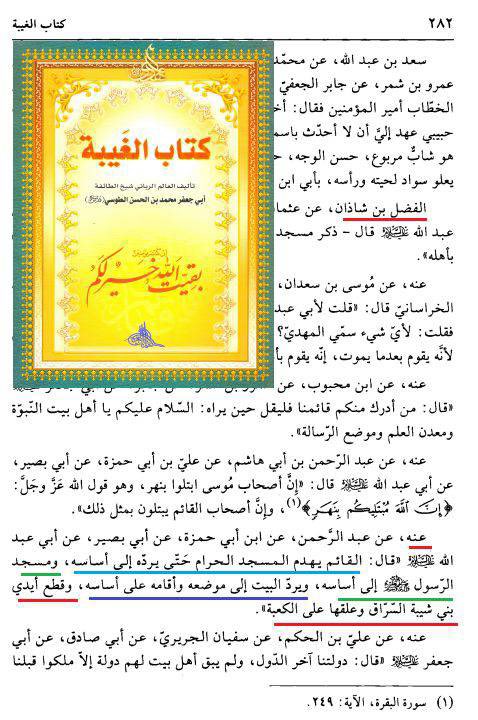 ٢٨٢
كتاب الغيبة
سعد بن عبد الله، عن محمّد
عمرو بن شمر، عن جابر الجعفيّ
الخطّاب أمير المؤمنين فقال: أخ
حبيبي عهد إليّ أن لا أحدّث باسم
هو شابٌّ مربوع، حسن الوجه، ح
يعلو سواد لحيته ورأسه، بأبي ابن
الفضل بن شاذان، عن عثما
عبد الله عليه السلام قال - ذكر مسجد
بأهله».
عنه، عن مُوسى بن سعدان،
الخراسانيّ قال: «قلت لأبي عبد
فقلت: لأيّ شيء سمّي المهديّ؟
لأنّه يقوم بعدما يموت، إنّه يقوم بأ
كتاب الغَيبة
تأليف العالم الرباني شيخ الطائفة
أبي جعفر محمد بن الحسن الطوسي
بقيت الله خير لكم
إن كنتم مؤمنين
عنه، عن ابن محبوب، عن
«قال: من أدرك منكم قائمنا فليقل حين يراه: السلام عليكم يا أهل بيت النبّوة
ومعدن العلم وموضع الرسالة».
عنه، عن عبد الرحمن بن أبي هاشم، عن عليّ بن أبي حمزة، عن أبي بصير،
عن أبي عبد الله عليه السلام قال: «إنَّ أصحاب مُوسى ابتلوا بنهر، وهو قول الله عَزَّ وجَلَّ:
﴿إِنَّ اللَّهَ مُبْتَلِيكُم بِنَهَرٍ﴾(١)، وإنَّ أصحاب القائم يبتلون بمثل ذلك».
عنه، عن عبد الرَّحمن، عن ابن أبي حمزة، عن أبي بصير، عن أبي عبد
الله عليه السلام «قال: القائم يهدم المسجد الحرام حَتّى يردّه إلى أساسه، ومسجد
الرّسول ﷺ إلى أساسه، ويردّ البيت إلى موضعه وأقامه على أساسه، وقطع أيدي
بني شيبة السّرّاق وعلّقها على الكعبة».
عنه، عن عليّ بن الحكم، عن سفيان الجريريّ، عن أبي صادق، عن أبي
جعفر عليه السلام «قال: دولتنا آخر الدّول، ولم يبق أهل بيت لهم دولة إلاّ ملكوا قبلنا
(١) سورة البقرة، الآية: ٢٤٩.